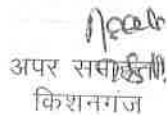 अपर समाहर्त्ता,
किशनगंज